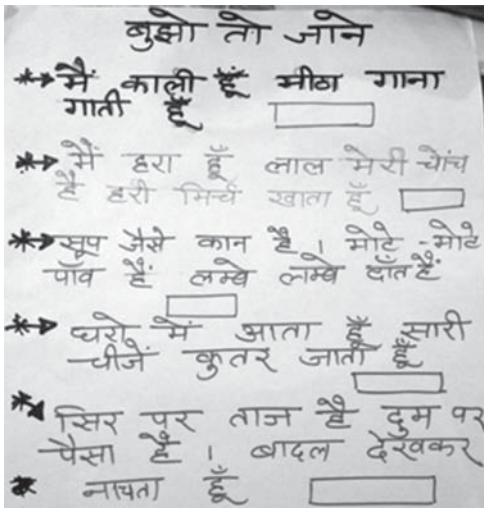 बुझो तो जाने
मैं काली हूँ मीठा गाना
गाती हूँ
मैं हरा हूँ लाल मेरी चोंच
है हरी मिर्च खाता हूँ
सूप जैसे कान है। मोटे-मोटे
पाँव हैं लम्बे लम्बे दाँत हैं
घरो में आता हूँ सारी
चीजें कुतर जाता हूँ
सिर पर ताज है दुम पर
पैसा है। बादल देखकर
नाचता हूँ